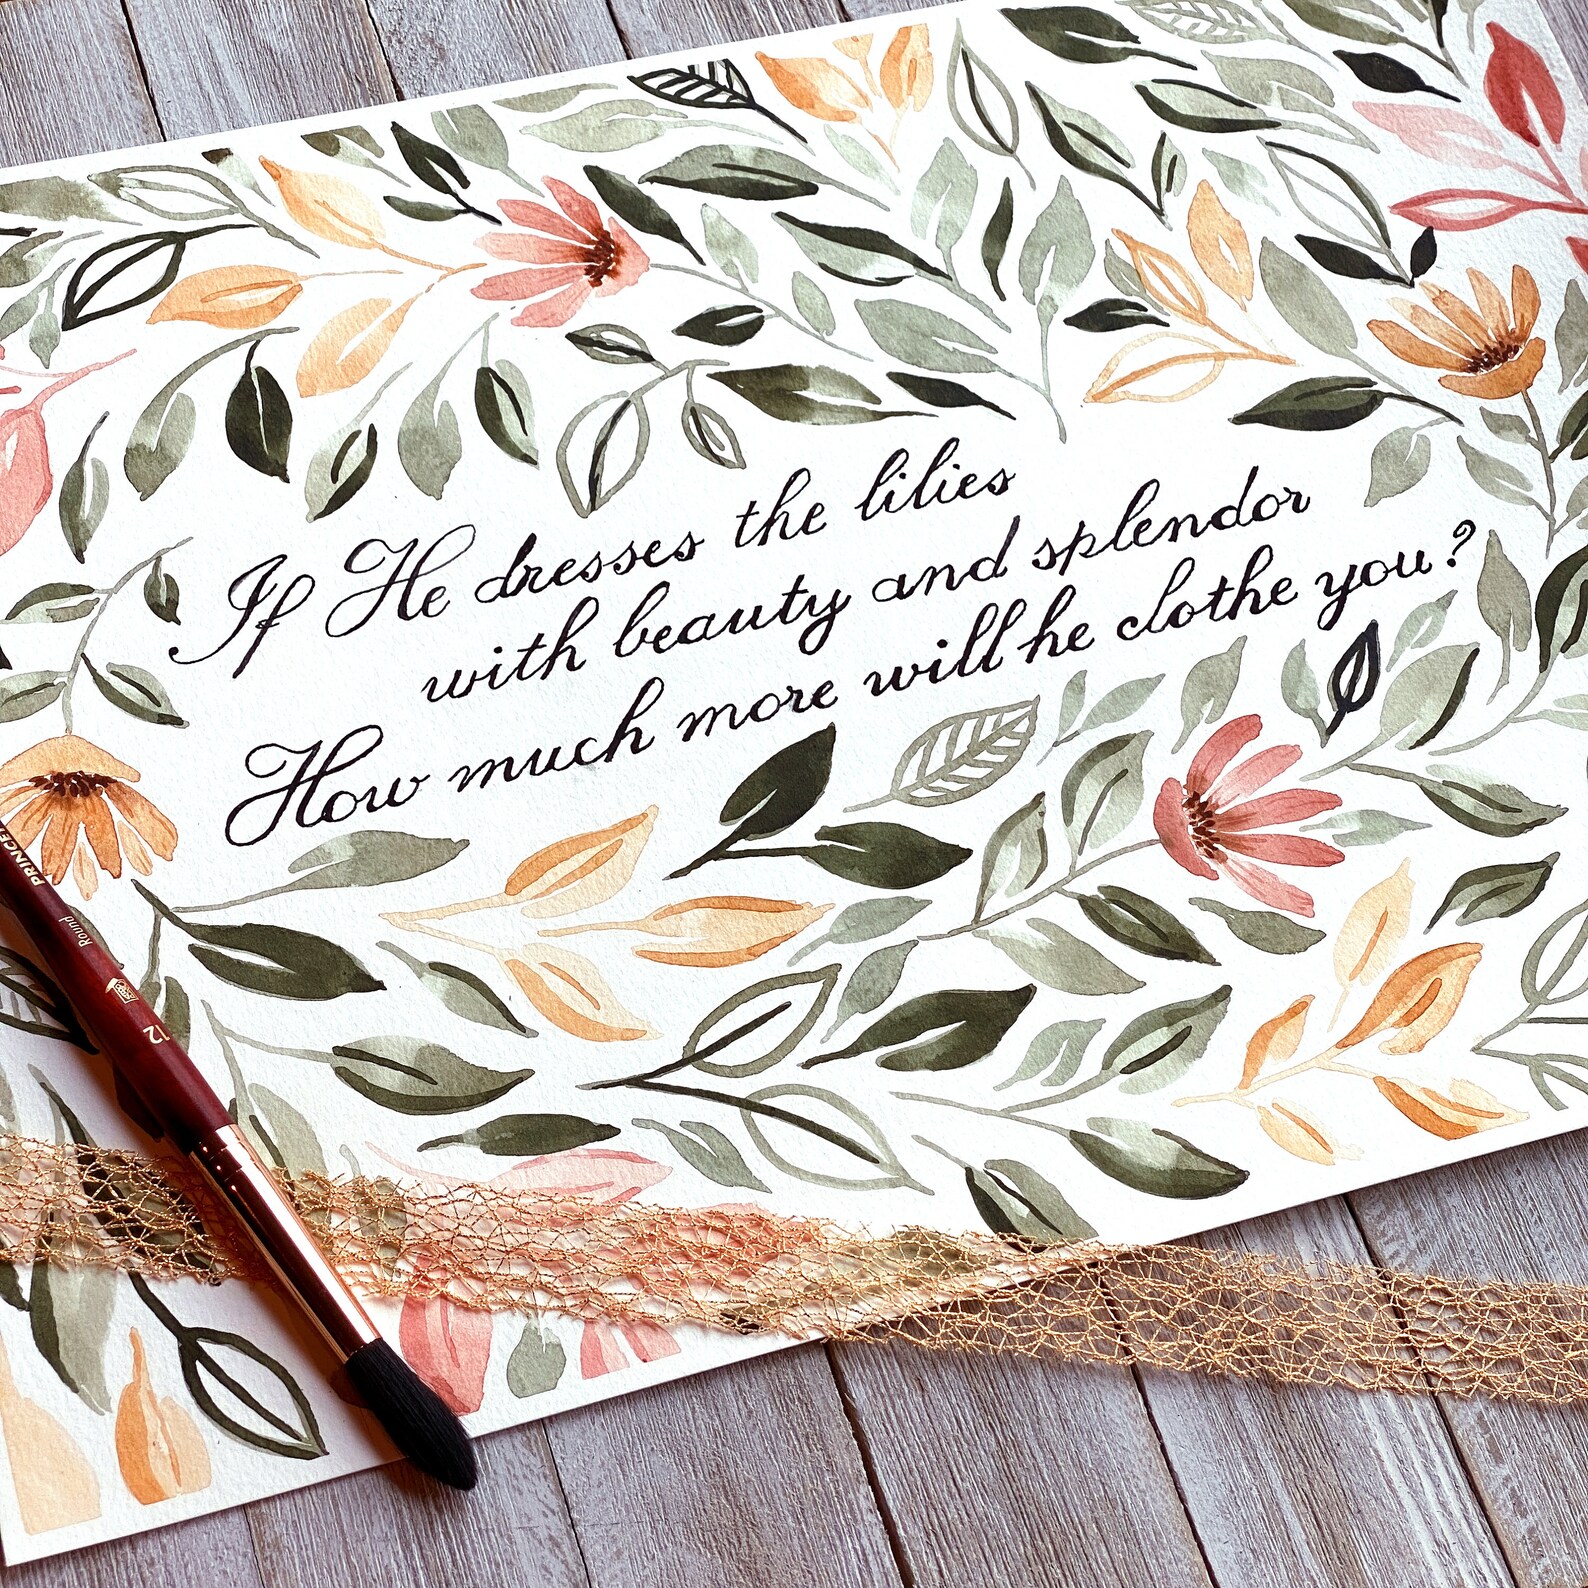 If He dresses the lilies
with beauty and splendor
How much more will he clothe you?
Round
12